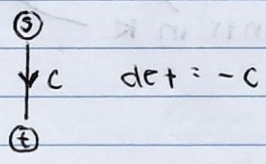 s
c det = -c
t